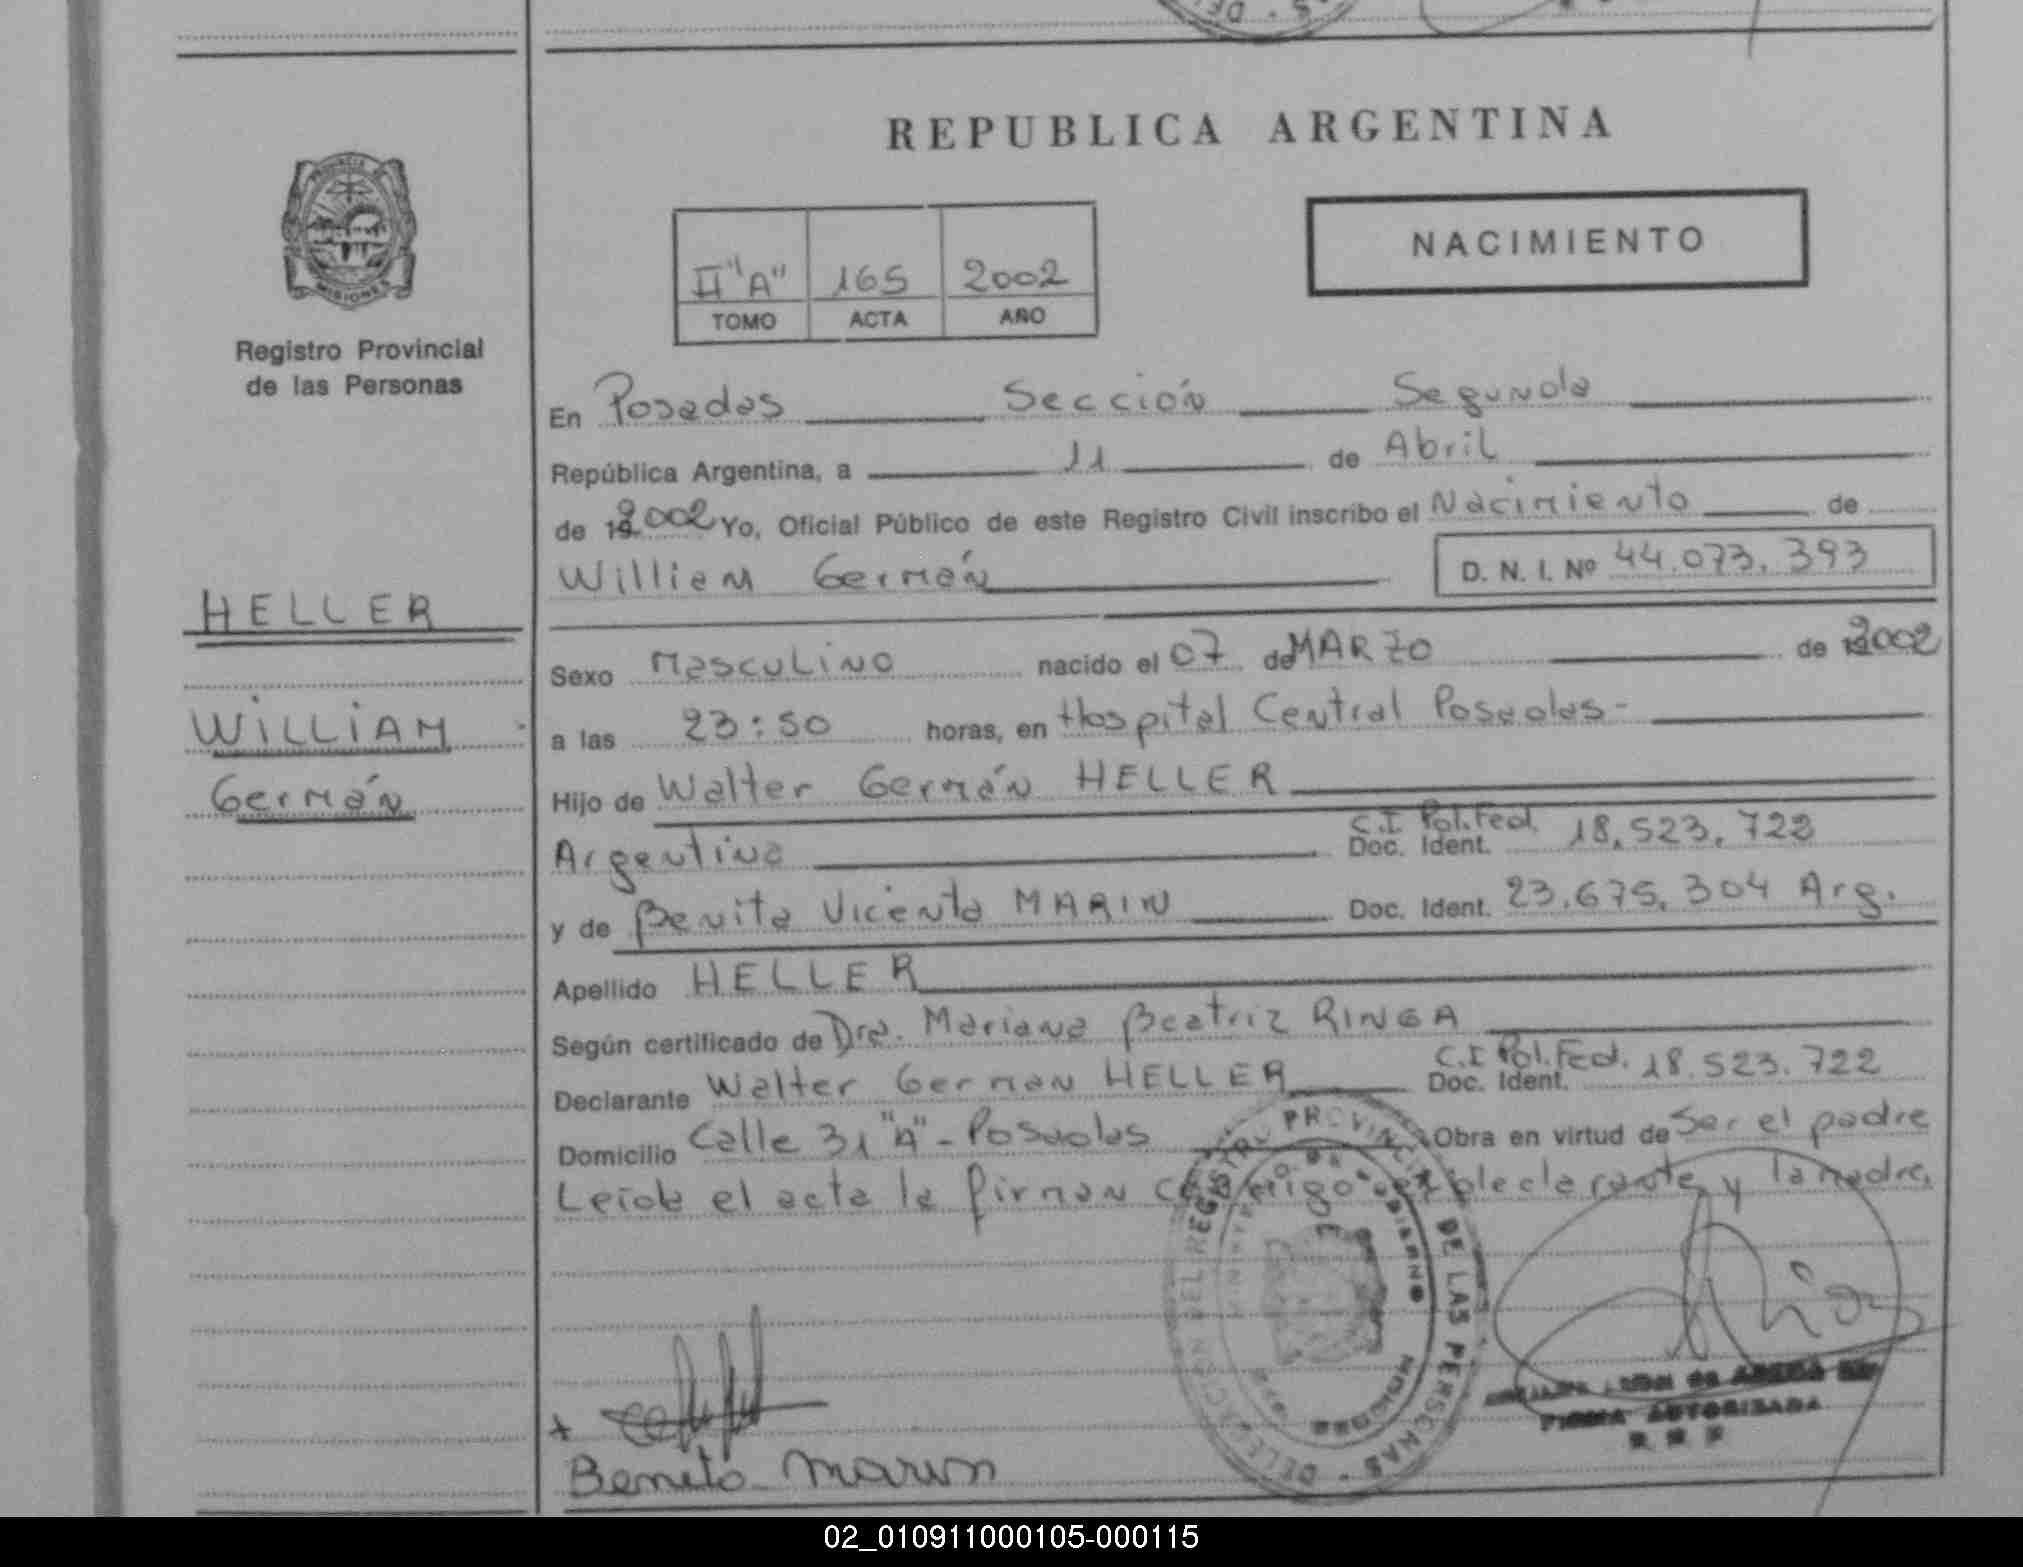 REPUBLICA ARGENTINA
PROVINCIA
MISIONES
Registro Provincial
de las Personas
NACIMIENTO
II "A" 165 2002
TOMO ACTA AÑO
En Posadas Sección Segunda
República Argentina, a 11 de Abril
de 192002 Yo, Oficial Público de este Registro Civil inscribo el Nacimiento de
William Germán D. N. I. Nº 44.073.393
HELLER
WILLIAM
Germán
Sexo Masculino nacido el 07 de MARZO de 2002
a las 23:50 horas, en Hospital Central Posadas-
Hijo de Walter Germán HELLER
Argentina C.I Pol.Fed. Doc. Ident. 18.523.722
y de Benita Vicenta MARIN Doc. Ident. 23.675.304 Arg.
Apellido HELLER
Según certificado de Dra. Mariana Beatriz RINGA
Declarante Walter German HELLER C.I Pol.Fed. Doc. Ident. 18.523.722
Domicilio Calle 31 "A" - Posadas Obra en virtud de Ser el padre
Leída el acta la firman conmigo el declarante y la madre.
DELEGACION DEL REGISTRO PROVINCIAL DE LAS PERSONAS
MISIONES
FIRMA AUTORIZADA
Benita Marin
02_010911000105-000115